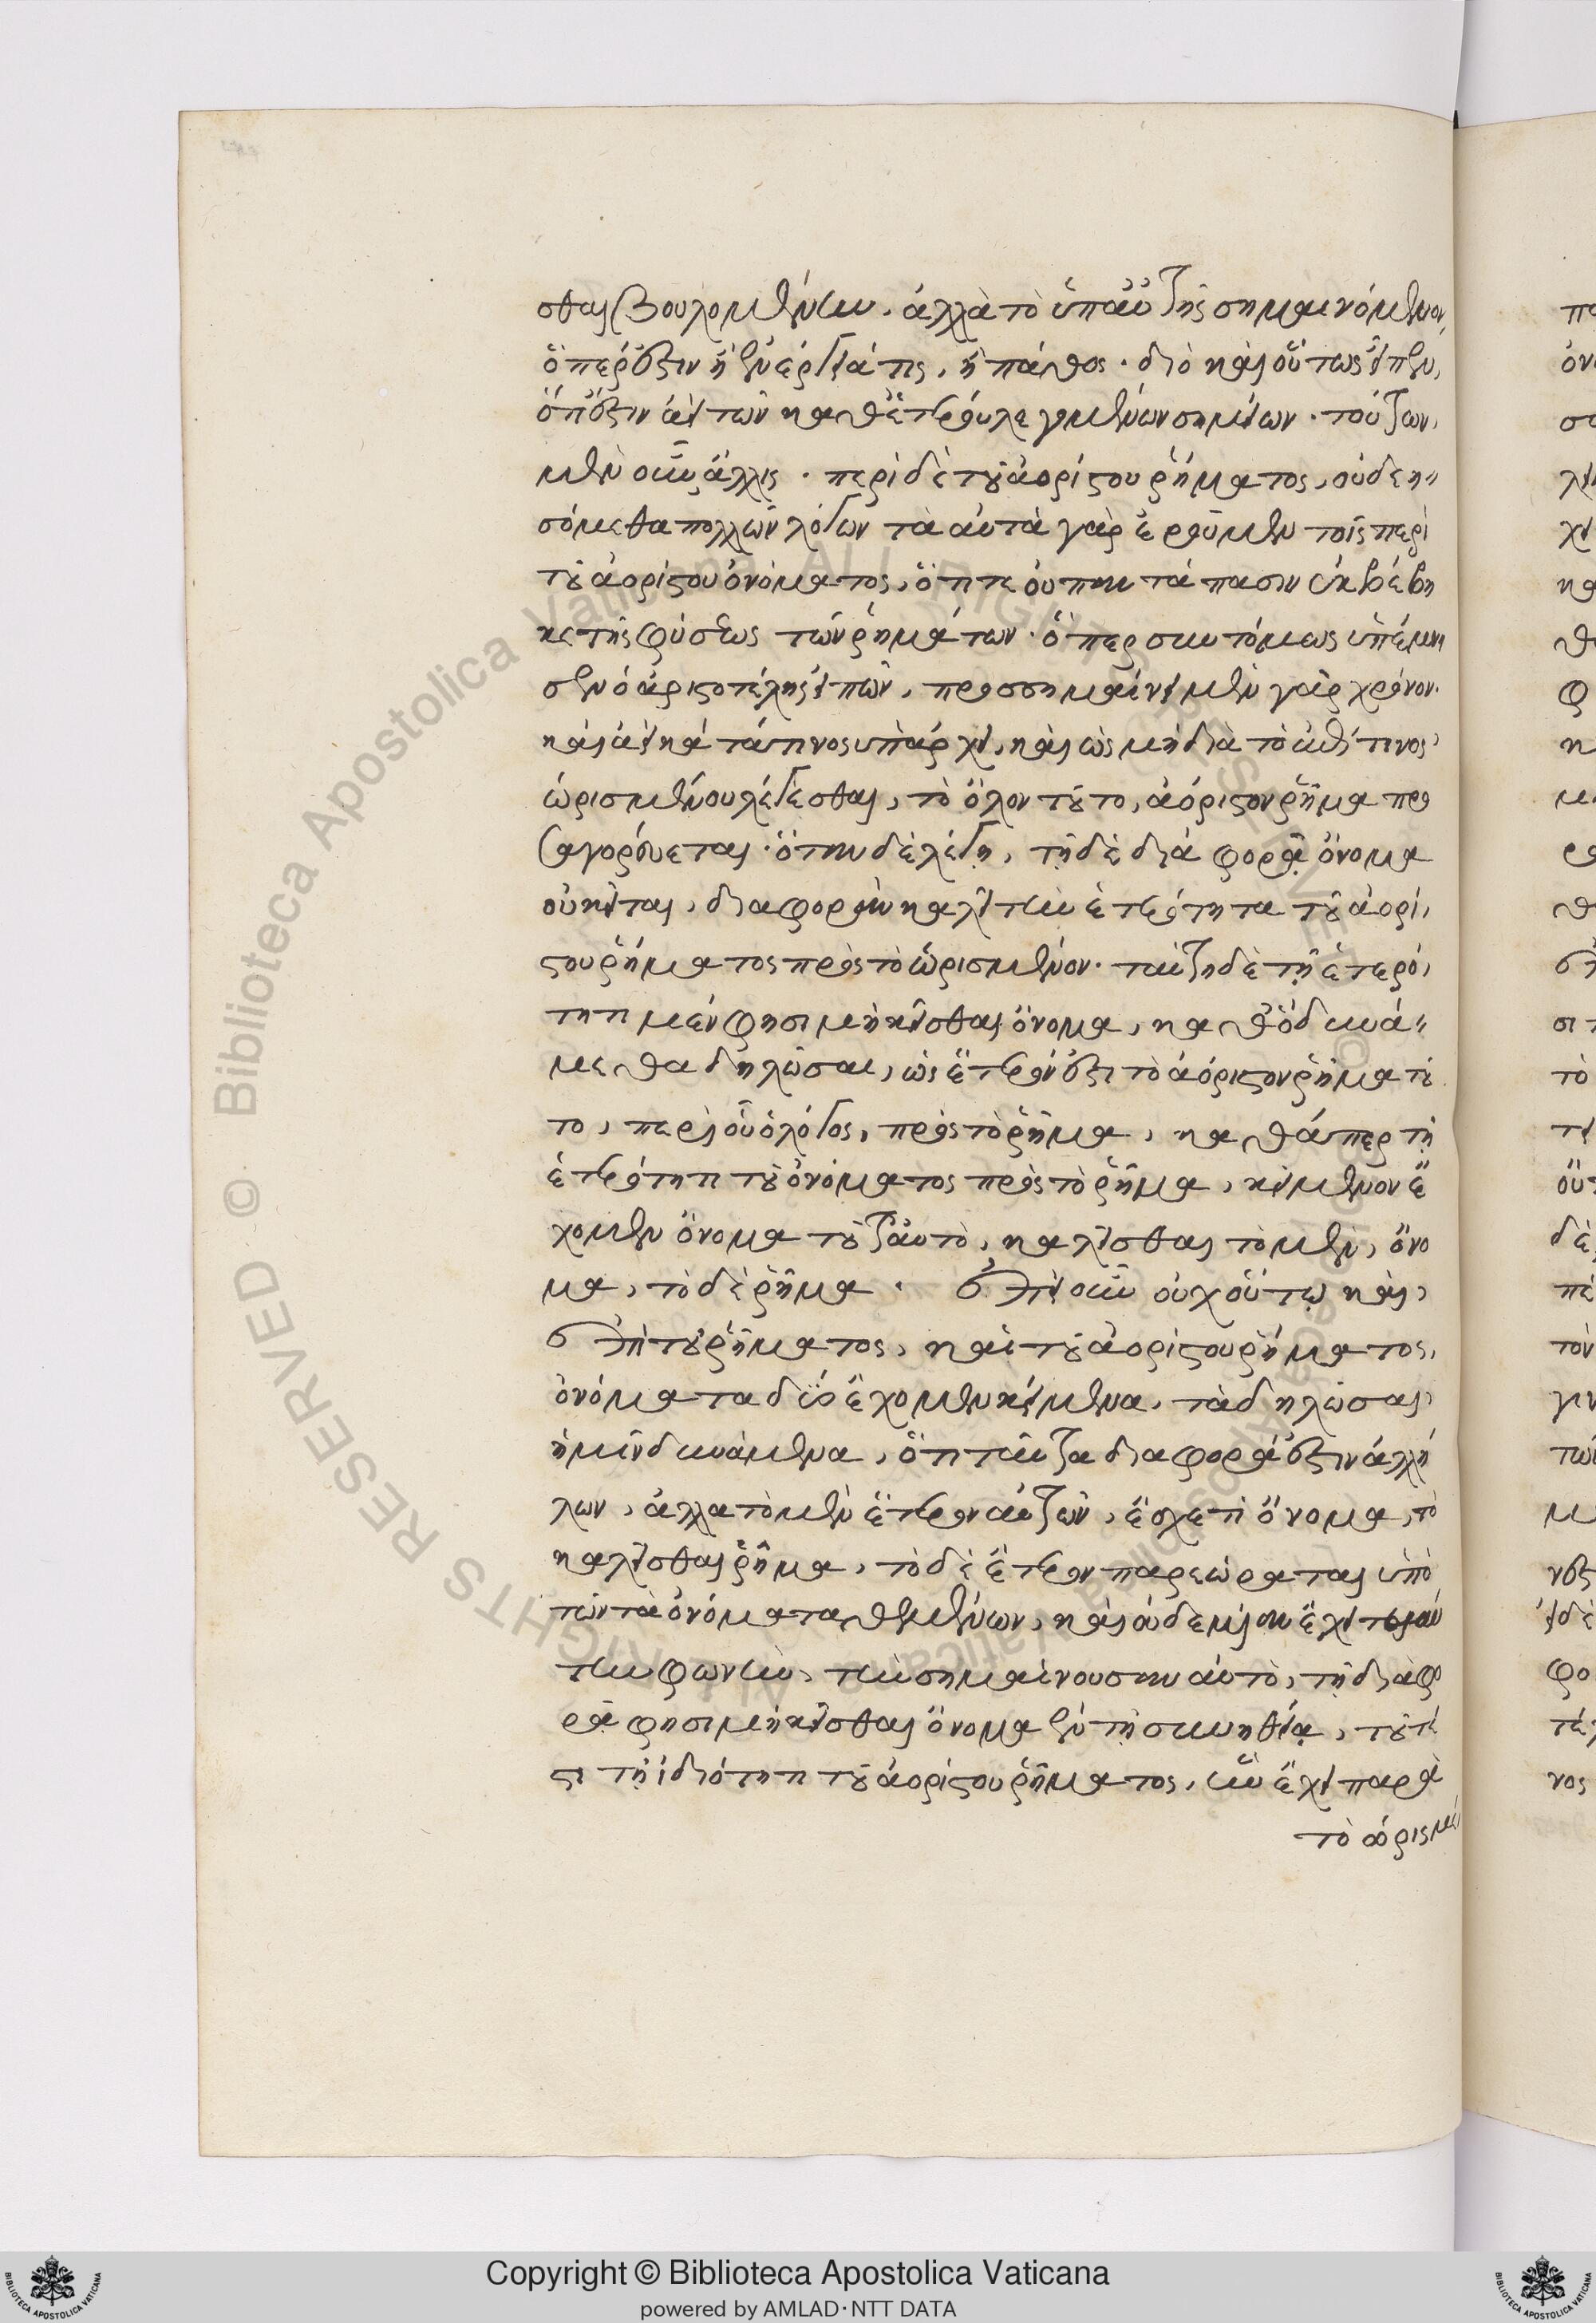 σθαι βουλομένων. ἀλλὰ τὸ ὑπ' αὐτῆς σημαινόμενον,
ὅπερ ἐστὶν ἢ ἐνέργειά τις, ἢ πάθος. διὸ καὶ οὕτως εἶπεν,
ὅτι ἐστὶν ἀεὶ τῶν καθ' ἑτέρου λεγομένων σημεῖον. τούτων
μὲν οὖν ἅλις. περὶ δὲ τοῦ ἀορίστου ῥήματος, οὐ δεη-
σόμεθα πολλῶν λόγων τὰ αὐτὰ γὰρ ἐροῦμεν τοῖς περὶ
τοῦ ἀορίστου ὀνόματος, ὅτι τε οὐ παντάπασιν ἐκβέβη
κε τῆς φύσεως τῶν ῥημάτων. ὅπερ συντόμως ὑπέμνη
σεν ὁ ἀριστοτέλης εἰπὼν, προσσημαίνει μὲν γὰρ χρόνον.
καὶ ἀεὶ κατά τινος ὑπάρχει, καὶ ὡς μὴ διὰ τὸ κατά τινος
ὡρισμένου λέγεσθαι, τὸ ὅλον τοῦτο, ἀόριστον ῥῆμα προ
σαγορεύεται. ὅταν δὲ λέγῃ, τῇ δὲ διαφορᾷ ὄνομα
οὐ κεῖται, διαφορὰν καλεῖ τὴν ἑτερότητα τοῦ ἀορί,
στου ῥήματος πρὸς τὸ ὡρισμένον. ταύτῃ δὲ τῇ ἑτερό,
τητι μέν φησι μὴ κεῖσθαι ὄνομα, καθ' ὃ δυνά-
μεθα δηλῶσαι, ὡς ἕτερόν ἐστι τὸ ἀόριστον ῥῆμα τοῦ
το, περὶ οὗ ὁ λόγος, πρὸς τὸ ῥῆμα, καθάπερ τῇ
ἑτερότητι τοῦ ὀνόματος πρὸς τὸ ῥῆμα, κείμενον ἔ
χομεν ὄνομα τοῦτ' αὐτὸ, καλεῖσθαι τὸ μὲν, ὄνο
μα, τὸ δὲ ῥῆμα. ἐπεὶ οὖν οὐχ οὕτω καὶ,
ἐπὶ τοῦ ῥήματος, καὶ τοῦ ἀορίστου ῥήματος,
ὀνόματα δύο ἔχομεν κείμενα, τὰ δηλῶσαι,
ἡμῖν δυνάμενα, ὅτι ταῦτα διάφορά ἐστιν ἀλλή
λων, ἀλλὰ τὸ μὲν ἕτερον αὐτῶν, ἔσχε τι ὄνομα, τὸ
καλεῖσθαι ῥῆμα, τὸ δὲ ἕτερον παρεώραται ὑπὸ
τῶν τὰ ὀνόματα θεμένων, καὶ οὐδεμίαν ἔχει τοιαύ
την φωνὴν, τὴν σημαίνουσαν αὐτὸ, τῇ διαφο
ρᾷ φησι μὴ κεῖσθαι ὄνομα ἐν τῇ συνηθείᾳ, τουτέ
στι τῇ ἰδιότητι τοῦ ἀορίστου ῥήματος, ἣν ἔχει παρὰ
τὸ ὡρισμέ